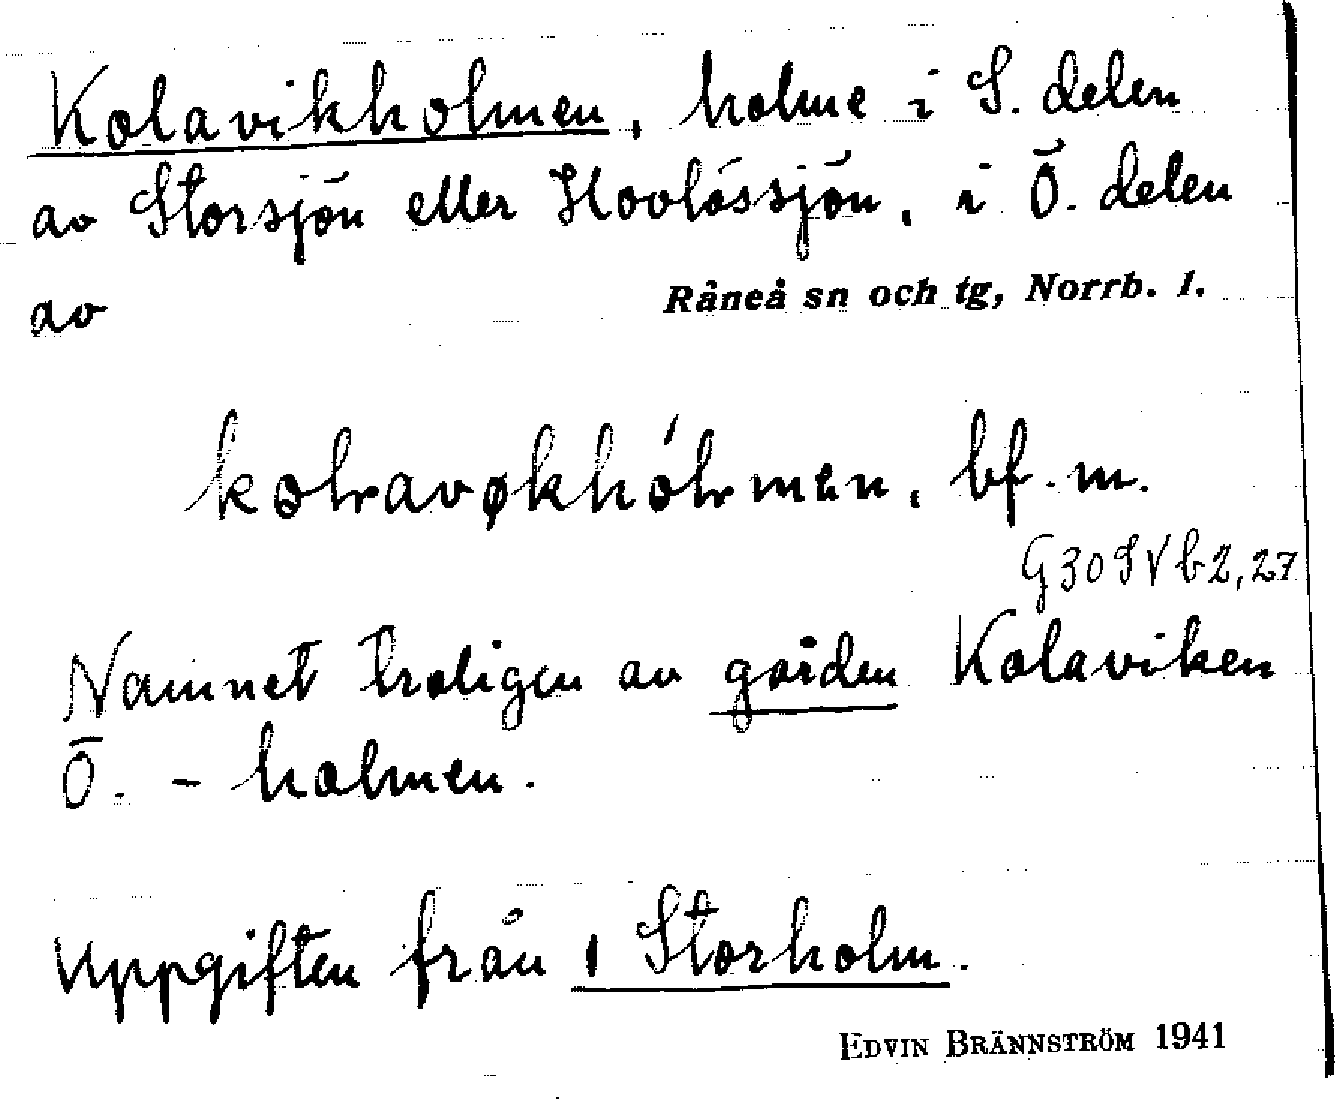 Kolavikholmen, holme i S. delen
av Storsjön eller Hovlössjön, i Ö. delen
av Råneå sn och tg, Norrb. l.
bf. m.
G30SVb2,27
Namnet troligen av gården Kolaviken
Ö. - holmen.
Uppgiften från 1 Storholm.
EDVIN BRÄNNSTRÖM 1941